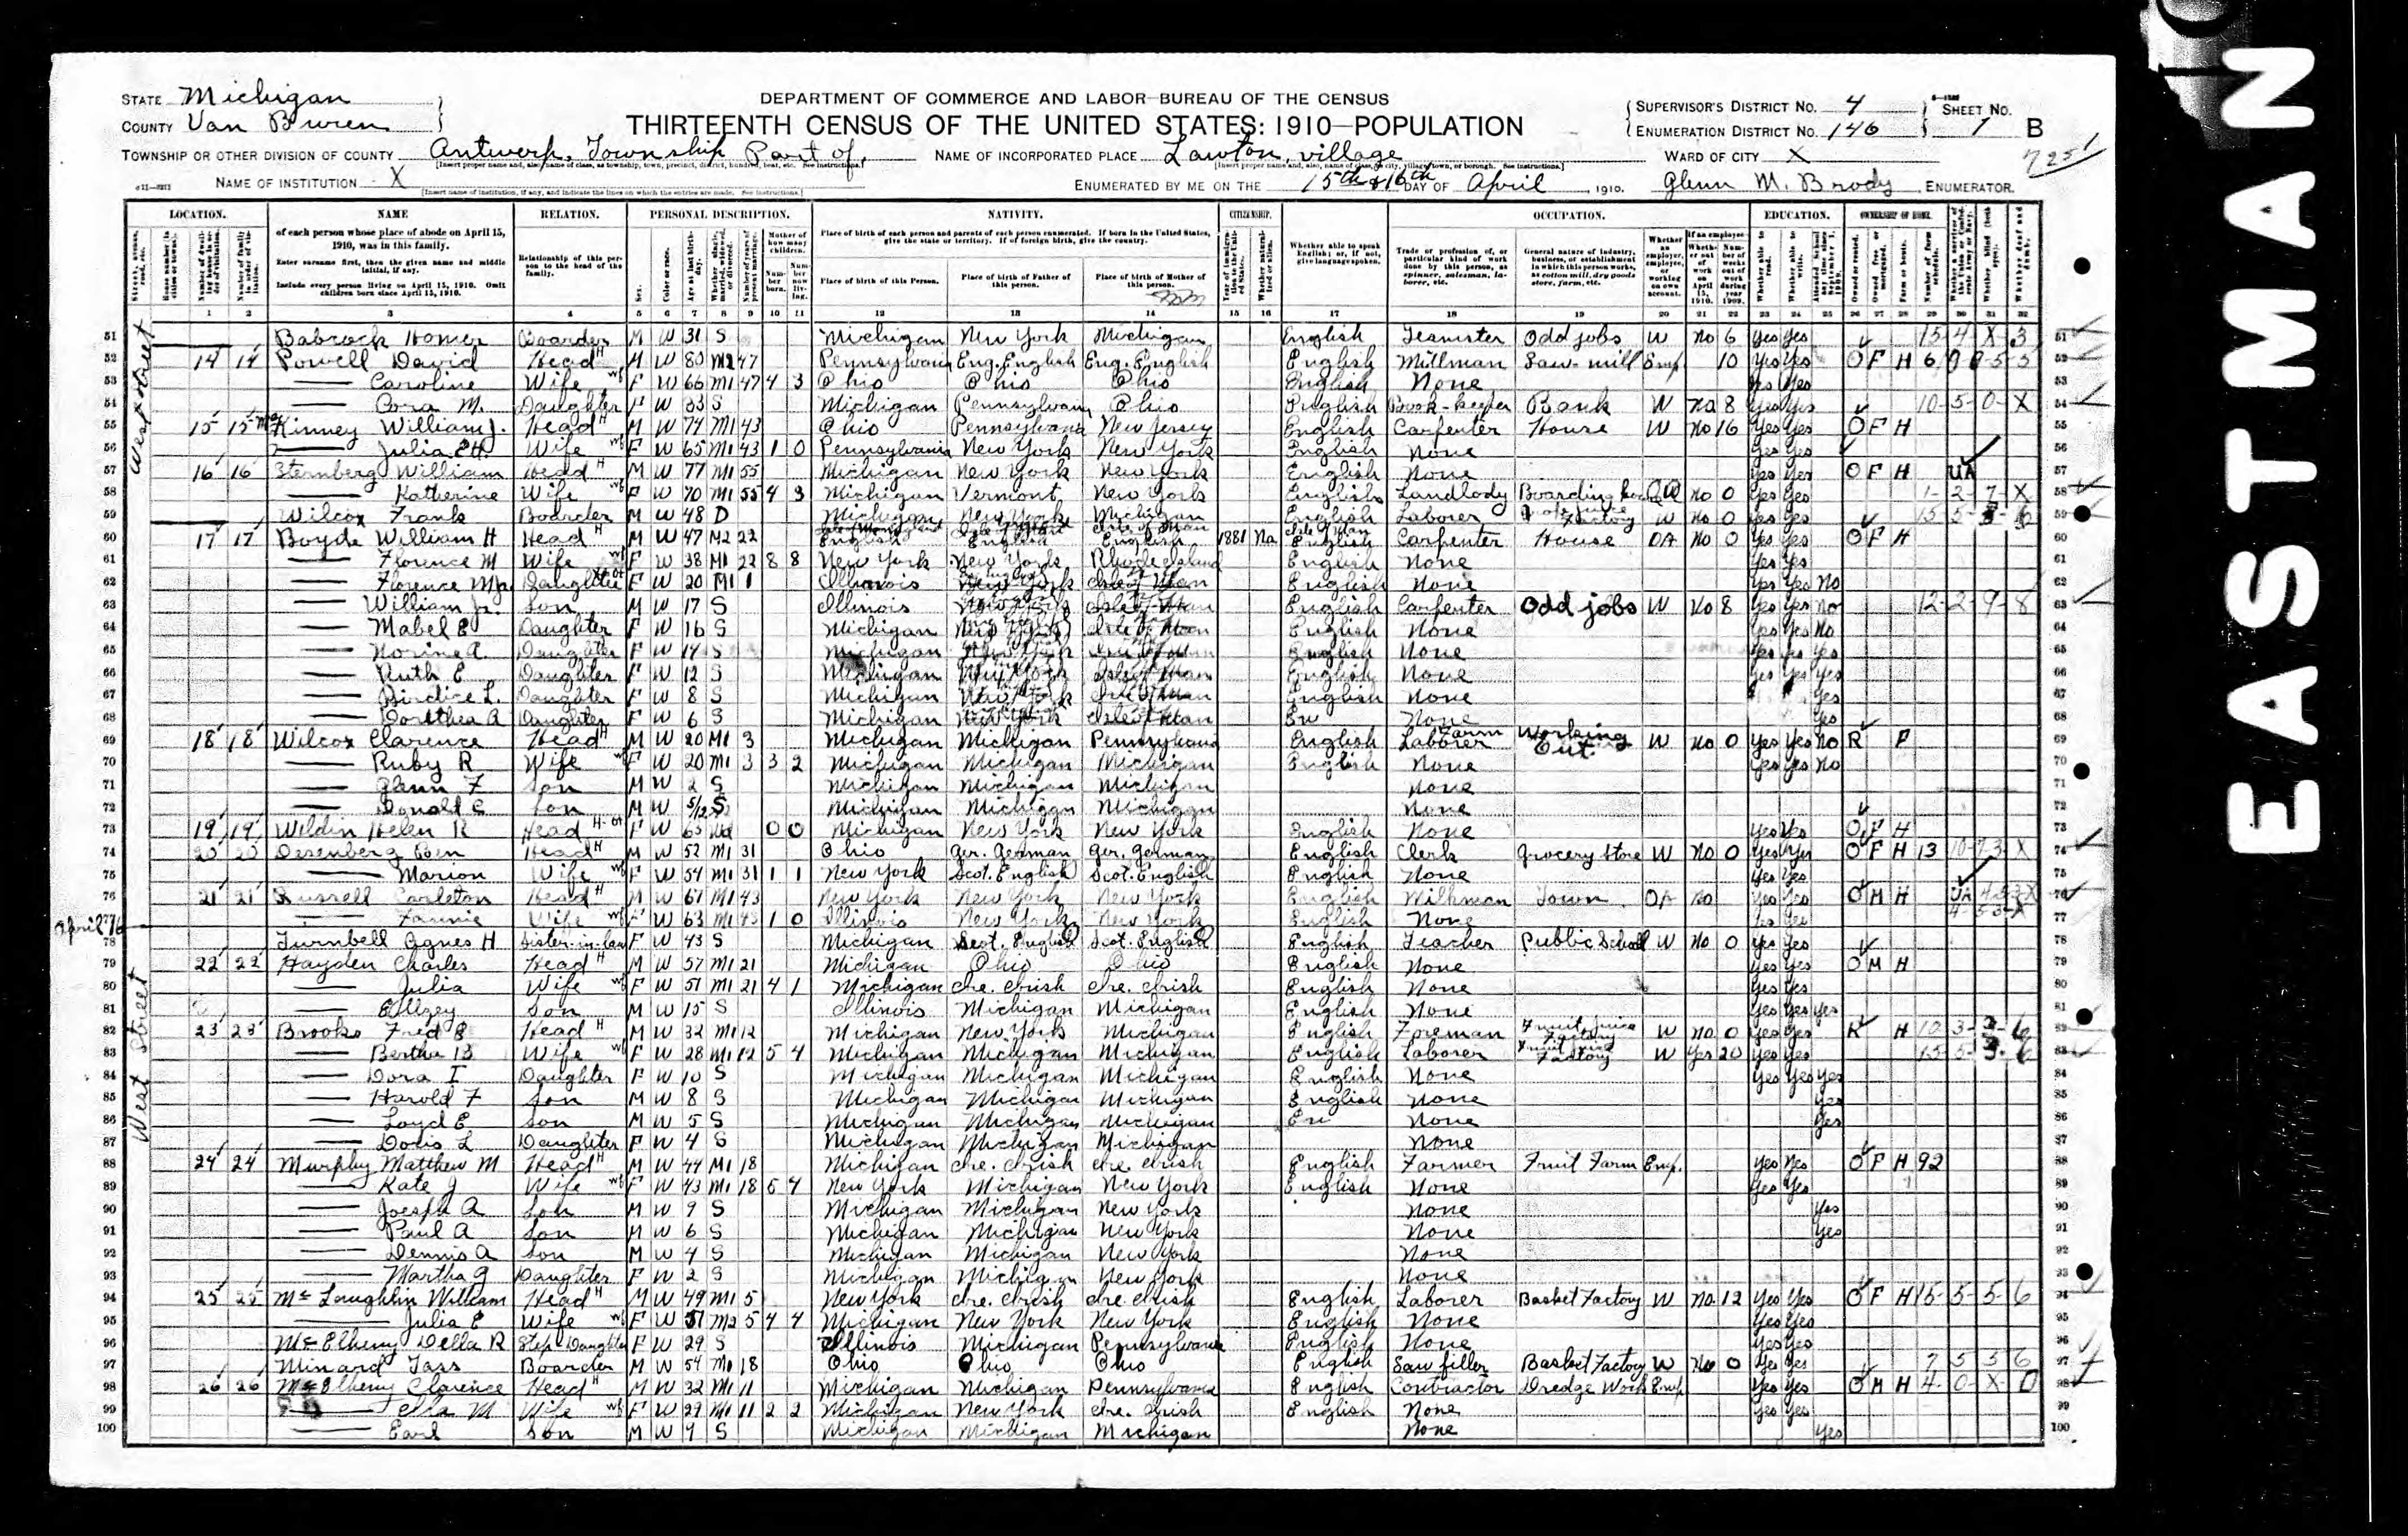 STATE Michigan
COUNTY Van Buren
DEPARTMENT OF COMMERCE AND LABOR—BUREAU OF THE CENSUS
THIRTEENTH CENSUS OF THE UNITED STATES: 1910—POPULATION
SUPERVISOR'S DISTRICT No. 4
ENUMERATION DISTRICT No. 146
SHEET No. 1 B
TOWNSHIP OR OTHER DIVISION OF COUNTY Antwerp, Township Part of,
NAME OF INCORPORATED PLACE Lawton, village
WARD OF CITY X
7251
NAME OF INSTITUTION X
ENUMERATED BY ME ON THE 15th & 16th DAY OF April, 1910. Glenn M. Brody, ENUMERATOR.
LOCATION. NAME RELATION. PERSONAL DESCRIPTION. NATIVITY. CITIZENSHIP. OCCUPATION. EDUCATION. OWNERSHIP OF HOME.
of each person whose place of abode on April 15, 1910, was in this family.
Enter surname first, then the given name and middle initial, if any.
Include every person living on April 15, 1910. Omit children born since April 15, 1910.
Relationship of this person to the head of the family.
Place of birth of each person and parents of each person enumerated. If born in the United States, give the state or territory. If of foreign birth, give the country.
Place of birth of this Person. Place of birth of Father of this person. Place of birth of Mother of this person.
Whether able to speak English; or, if not, give language spoken.
1 2 3 4 5 6 7 8 9 10 11 12 13 14 15 16 17 18 19 20 21 22 23 24 25 26 27 28 29 30 31 32
West Street
51 Babcock Homer Boarder M W 31 S Michigan New York Michigan English Teamster Odd jobs W No 6 Yes Yes 15-4-X 3
52 14 14 Powell David Head M W 80 M2 47 Pennsylvania Eng. English Eng. English English Millman Saw-mill Emp 10 Yes Yes O F H
53 — Caroline Wife F W 66 M1 47 4 3 Ohio Ohio Ohio English None Yes Yes
54 — Cora M. Daughter F W 33 S Michigan Pennsylvania Ohio English Book-keeper Bank W No 8 Yes Yes 10-5-0-X
55 15 15 Kinney William J. Head M W 74 M1 43 Ohio Pennsylvania New Jersey English Carpenter House W No 16 Yes Yes O F H
56 — Julia Wife F W 65 M1 43 1 0 Pennsylvania New York New York English None Yes Yes
57 16 16 Sternberg William Head M W 77 M1 55 Michigan New York New York English None Yes Yes O F H UA
58 — Katherine Wife F W 70 M1 55 4 3 Michigan Vermont New York English Landlady Boarding OA No 0 Yes Yes 1-2-7-X
59 Wilcox Frank Boarder M W 48 D Michigan New York Michigan English Laborer Factory W No 0 Yes Yes
60 17 17 Boyde William H Head M W 47 M2 22 English English English 1881 Na English Carpenter House OA No 0 Yes Yes O F H
61 — Florence M Wife F W 38 M1 22 8 8 New York New York Rhode Island English None Yes Yes
62 — Florence M Daughter F W 20 M1 1 Illinois New York Isle of Man English None Yes Yes No
63 — William Jr. Son M W 17 S Illinois New York Isle of Man English Carpenter Odd jobs W No 8 Yes Yes No 12-2-9-8
64 — Mabel E Daughter F W 16 S Michigan New York Isle of Man English None Yes Yes No
65 — Norine A. Daughter F W 14 S Michigan New York Isle of Man English None Yes Yes Yes
66 — Ruth E Daughter F W 12 S Michigan New York Isle of Man English None Yes Yes Yes
67 — Birdice L. Daughter F W 8 S Michigan New York Isle of Man English None Yes
68 — Dorethea A Daughter F W 6 S Michigan New York Isle of Man En None Yes
69 18 18 Wilcox Clarence Head M W 20 M1 3 Michigan Michigan Pennsylvania English Farm Laborer Working Out W No 0 Yes Yes No R
70 — Ruby R Wife F W 20 M1 3 3 2 Michigan Michigan Michigan English None Yes Yes No
71 — Glenn F Son M W 2 S Michigan Michigan Michigan None
72 — Donald E Son M W 5/12 S Michigan Michigan Michigan None
73 19 19 Wildin Helen R Head F W 65 Wd 0 0 Michigan New York New York English None Yes Yes O F H
74 20 20 Desenberg Ben Head M W 52 M1 31 Ohio Ger. German Ger. German English Clerk Grocery Store W No 0 Yes Yes O F H 13
75 — Marion Wife F W 54 M1 31 1 1 New York Scot. English Scot. English English None Yes Yes
76 21 21 Russell Carleton Head M W 67 M1 43 New York New York New York English Milkman Town OA No Yes Yes O M H UA
April 16
77 — Fannie Wife F W 63 M1 43 1 0 Illinois New York New York English None Yes Yes
78 Turnbell Agnes H Sister-in-law F W 43 S Michigan Scot. English Scot. English English Teacher Public School W No 0 Yes Yes
79 22 22 Hayden Charles Head M W 57 M1 21 Michigan Ohio Ohio English None Yes Yes O M H
West Street
80 — Julia Wife F W 51 M1 21 4 1 Michigan Ire. Irish Ire. Irish English None Yes Yes
81 — Ellzey Son M W 15 S Illinois Michigan Michigan English None Yes Yes Yes
82 23 23 Brooks Fred E Head M W 32 M1 12 Michigan New York Michigan English Foreman Fruit juice Factory W No 0 Yes Yes R H
83 — Bertha B Wife F W 28 M1 12 5 4 Michigan Michigan Michigan English Laborer Fruit juice Factory W Yes 20 Yes Yes
84 — Dora I Daughter F W 10 S Michigan Michigan Michigan English None Yes Yes Yes
85 — Harold F Son M W 8 S Michigan Michigan Michigan English None Yes
86 — Loyd E Son M W 5 S Michigan Michigan Michigan En None Yes
87 — Doris L Daughter F W 4 S Michigan Michigan Michigan None
88 24 24 Murphy Matthew M Head M W 44 M1 18 Michigan Ire. Irish Ire. Irish English Farmer Fruit Farm Emp. Yes Yes O F H 92
89 — Kate J Wife F W 43 M1 18 5 4 New York Michigan New York English None Yes Yes
90 — Joesph A Son M W 9 S Michigan Michigan New York None Yes
91 — Paul A Son M W 6 S Michigan Michigan New York None Yes
92 — Dennis A Son M W 4 S Michigan Michigan New York None
93 — Martha G Daughter F W 2 S Michigan Michigan New York None
94 25 25 McLaughlin William Head M W 49 M1 5 New York Ire. Irish Ire. Irish English Laborer Basket Factory W No 12 Yes Yes O F H 15-5-5-6
95 — Julia E Wife F W 51 M2 5 4 4 Michigan New York New York English None Yes Yes
96 McElheny Della R Step Daughter F W 29 S Illinois Michigan Pennsylvania English None Yes Yes
97 Minard Tass Boarder M W 54 M1 18 Ohio Ohio Ohio English Saw filler Basket Factory W No 0 Yes Yes 7 5 3 6
98 26 26 McElheny Clarence Head M W 32 M1 11 Michigan Michigan Pennsylvania English Contractor Dredge Work Emp Yes Yes O M H 4-0-X-0
99 — Ella M Wife F W 29 M1 11 2 2 Michigan New York Ire. Irish English None Yes Yes
100 — Earl Son M W 7 S Michigan Michigan Michigan None Yes
EASTMAN